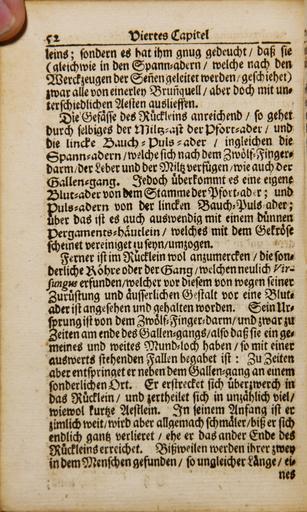 52 Viertes Capitel
leins; sondern es hat ihm gnug gedeucht/ daß sie
(gleichwie in den Spann-adern/ welche nach den
Werckzeugen der Señen geleitet werden/ geschiehet)
zwar alle von einerley Bruñquell/ aber doch mit un-
terschiedlichen Aesten auslieffen.
Die Gefässe des Rückleins anreichend/ so gehet
durch selbiges der Miltz-ast der Pfort-ader/ und
die lincke Bauch-Puls-ader/ ingleichen die
Spann-adern/ welche sich nach dem Zwölf-Finger-
darm/ der Leber und der Miltz verfügen/ wie auch der
Gallen-gang. Jedoch überkommt es eine eigene
Blut-ader von dem Stamme der Pfort-ader; und
Puls-adern von der lincken Bauch-Puls-ader;
über das ist es auch auswendig mit einem dünnen
Pergaments-häutlein/ welches mit dem Gekröse
scheinet vereiniget zu seyn/ umzogen.
Ferner ist im Rücklein wol anzumercken/ die son-
derliche Röhre oder der Gang/ welchen neulich Vir-
sungus erfunden/ welcher vor diesem von wegen seiner
Zurüstung und äusserlichen Gestalt vor eine Blut-
ader ist angesehen und gehalten worden. Sein Ur-
sprung ist von dem Zwölf-Finger-darm/ und zwar zu
Zeiten am ende des Gallen-gangs/ also daß sie ein ge-
meines und weites Mund-loch haben/ so mit einer
auswerts stehenden Fallen begabet ist: Zu Zeiten
aber entspringet er neben dem Gallen-gang an einem
sonderlichen Ort. Er erstrecket sich überzwerch in
das Rücklein/ und zertheilet sich in unzählich viel/
wiewol kurtze Aestlein. In seinem Anfang ist er
zimlich weit/ wird aber allgemach schmäler/ biß er sich
endlich gantz verlieret/ ehe er das ander Ende des
Rückleins erreichet. Bißweilen werden ihrer zwey
in dem Menschen gefunden/ so ungleicher Länge/ ei-
nes